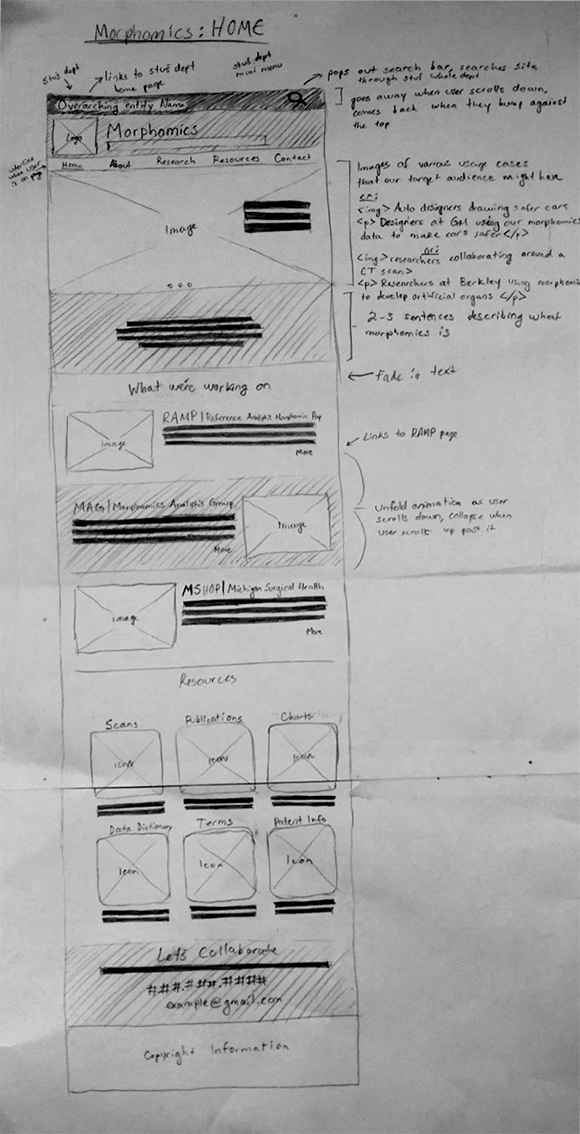 Morphomics: HOME
stu's dept
links to stu's dept
home page
stu's dept
mini menu
pops out search bar, searches site
through stu's whole dept
Overarching entity Name
goes away when user scrolls down,
comes back when they bump against
the top
Logo
Morphomics
underline
when user
is on page
Home About Research Resources Contact
Image
Images of various usage cases
that our target audience might have
ex:
<img> Auto designers drawing safer cars
<p> Designers at GM using our morphomics
data to make cars safer </p>
or:
<img> researchers collaborating around a
CT scan>
<p> Researchers at Berkley using morphomi
to develop artificial organs </p>
2-3 sentences describing what
morphomics is
What we're working on
Fade in text
RAMP | Reference Analytic Morphomic Pop
Image
More
Links to RAMP page
MAG | Morphomics Analysis Group
Image
More
Unfold animation as user
scrolls down, collapse when
user scrolls up past it
MSHOP | Michigan Surgical Health
Image
More
Resources
Scans Publications Charts
Icon Icon Icon
Data Dictionary Terms Patent Info
Icon Icon Icon
Let's Collaborate
###.###.####
example@gmail.com
Copyright Information